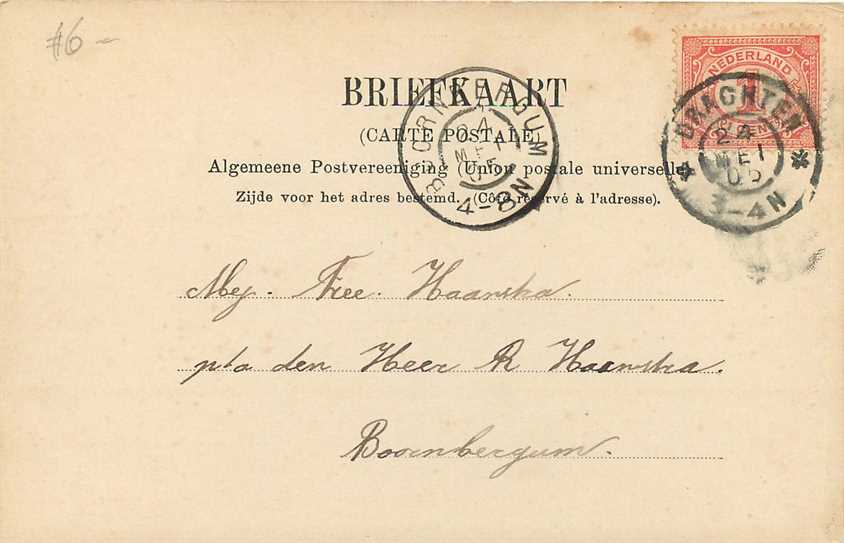 #6 -
NEDERLAND
1
CENT
DRACHTEN
24
MEI
05
3-4N
BOORNBERGUM
24
MEI
05
4-8N
BRIEFKAART
(CARTE POSTALE)
Algemeene Postvereeniging (Union postale universelle)
Zijde voor het adres bestemd. (Côté réservé à l'adresse).
Mej. Free. Haarsha.
p/a den Heer R Haarsha.
Boornbergum.